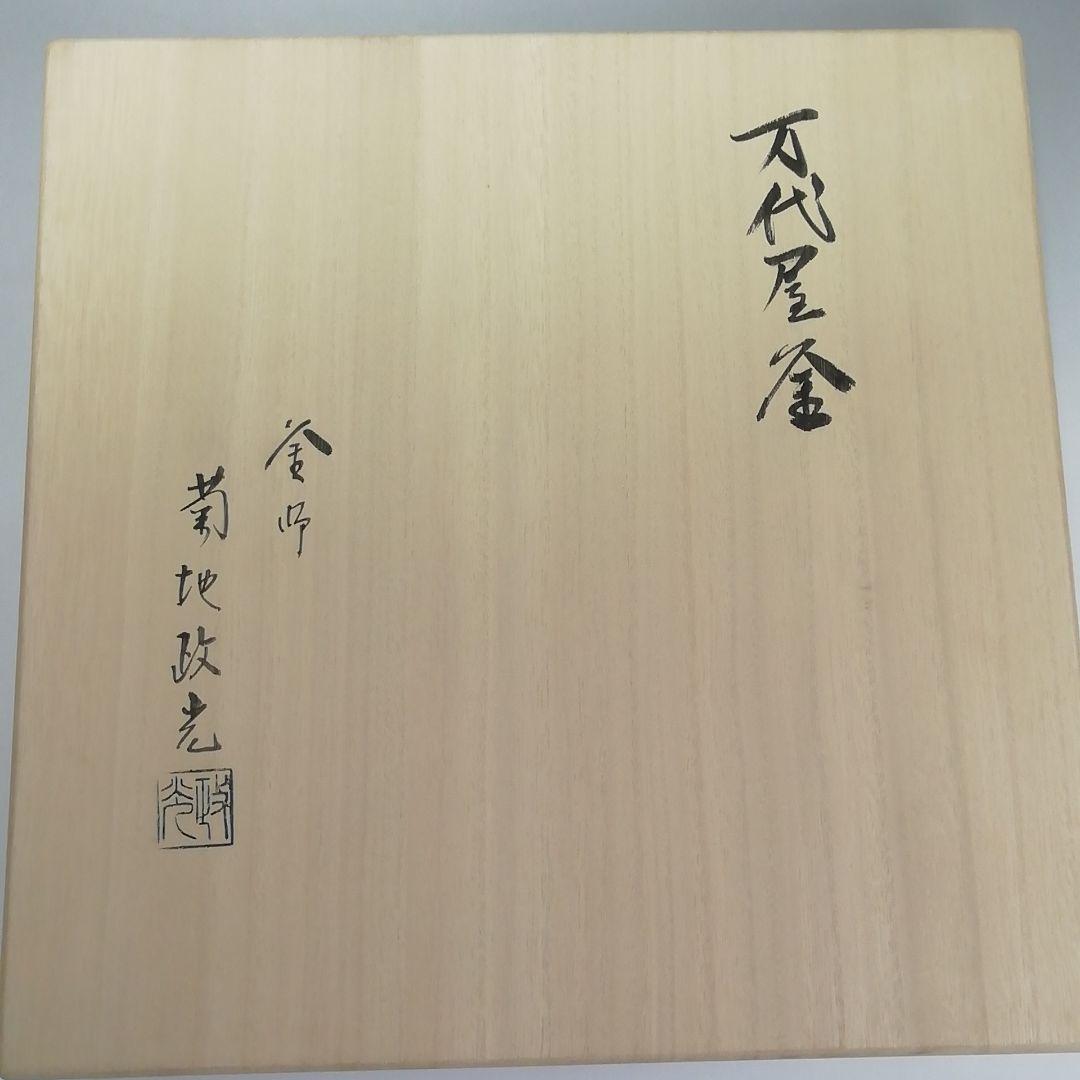 万代屋釜
釜師
菊地政光
政光